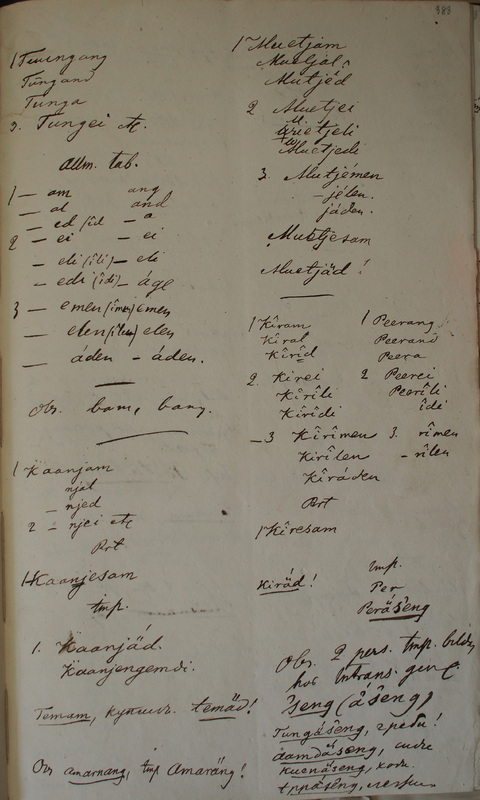 989
1 Tuungang
Tūngand
Tunga
3. Tungei etc.
allm. tab.
1 — am ang
— al and
— ed /îd — a
2 — ei — ei
— eli (îli) — eli
— edi (îdi) — áge
3 — emen (îmen) emen
— elen (îlen) elen
— áden — áden.
Obs. bam, bang.
1 Kaanjam
njal
— njed
2 — njei etc
Prt
1 Kaanjesam
Imp.
1. Kaanjäd.
Kaanjengemdi.
Temam, temäd!
Obs amarnang, Imp Amaräng!
1 Muetjam
Muetjal
Mutjed
2 Muetjei
Muetjeli
Muetjedi
3. Mutjémen
— jélen.
jáden.
Muetjesam
Muetjäd!
1 Kîram
Kîral
Kîrîd
2. Kirei
Kirîli
Kîrîdi
— 3 Kîrîmen
Kirîlen
Kîráden
Prt
1 Kîresam
Kiräd!
1 Peerang
Peerand
Peera
2 Peerei
Peerîli
îdi
3. rîmen
— rîlen
Imp.
Per
Peräseng
Obs. 2 pers. Imp.
hos Intrans.
seng (äseng)
Tungäseng, греби!
damdäseng,
Kuenäseng,